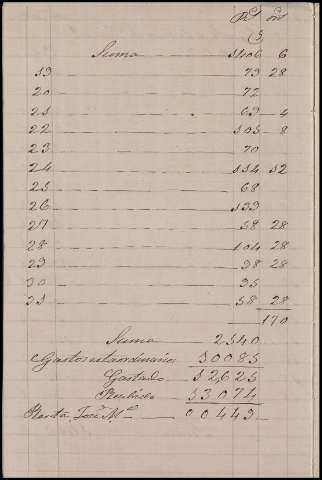 Ps on
(3)
Suma 1406 6
19 79 28
20 72
21 69 4
22 105 8
23 70
24 114 12
25 68
26 139
27 58 28
28 104 28
29 98 28
30 95
31 58 28
170
Suma 2540
Gastos estraordinarios 10085
Gastado 12625
Recibido 13074
Resta José Ma 00449